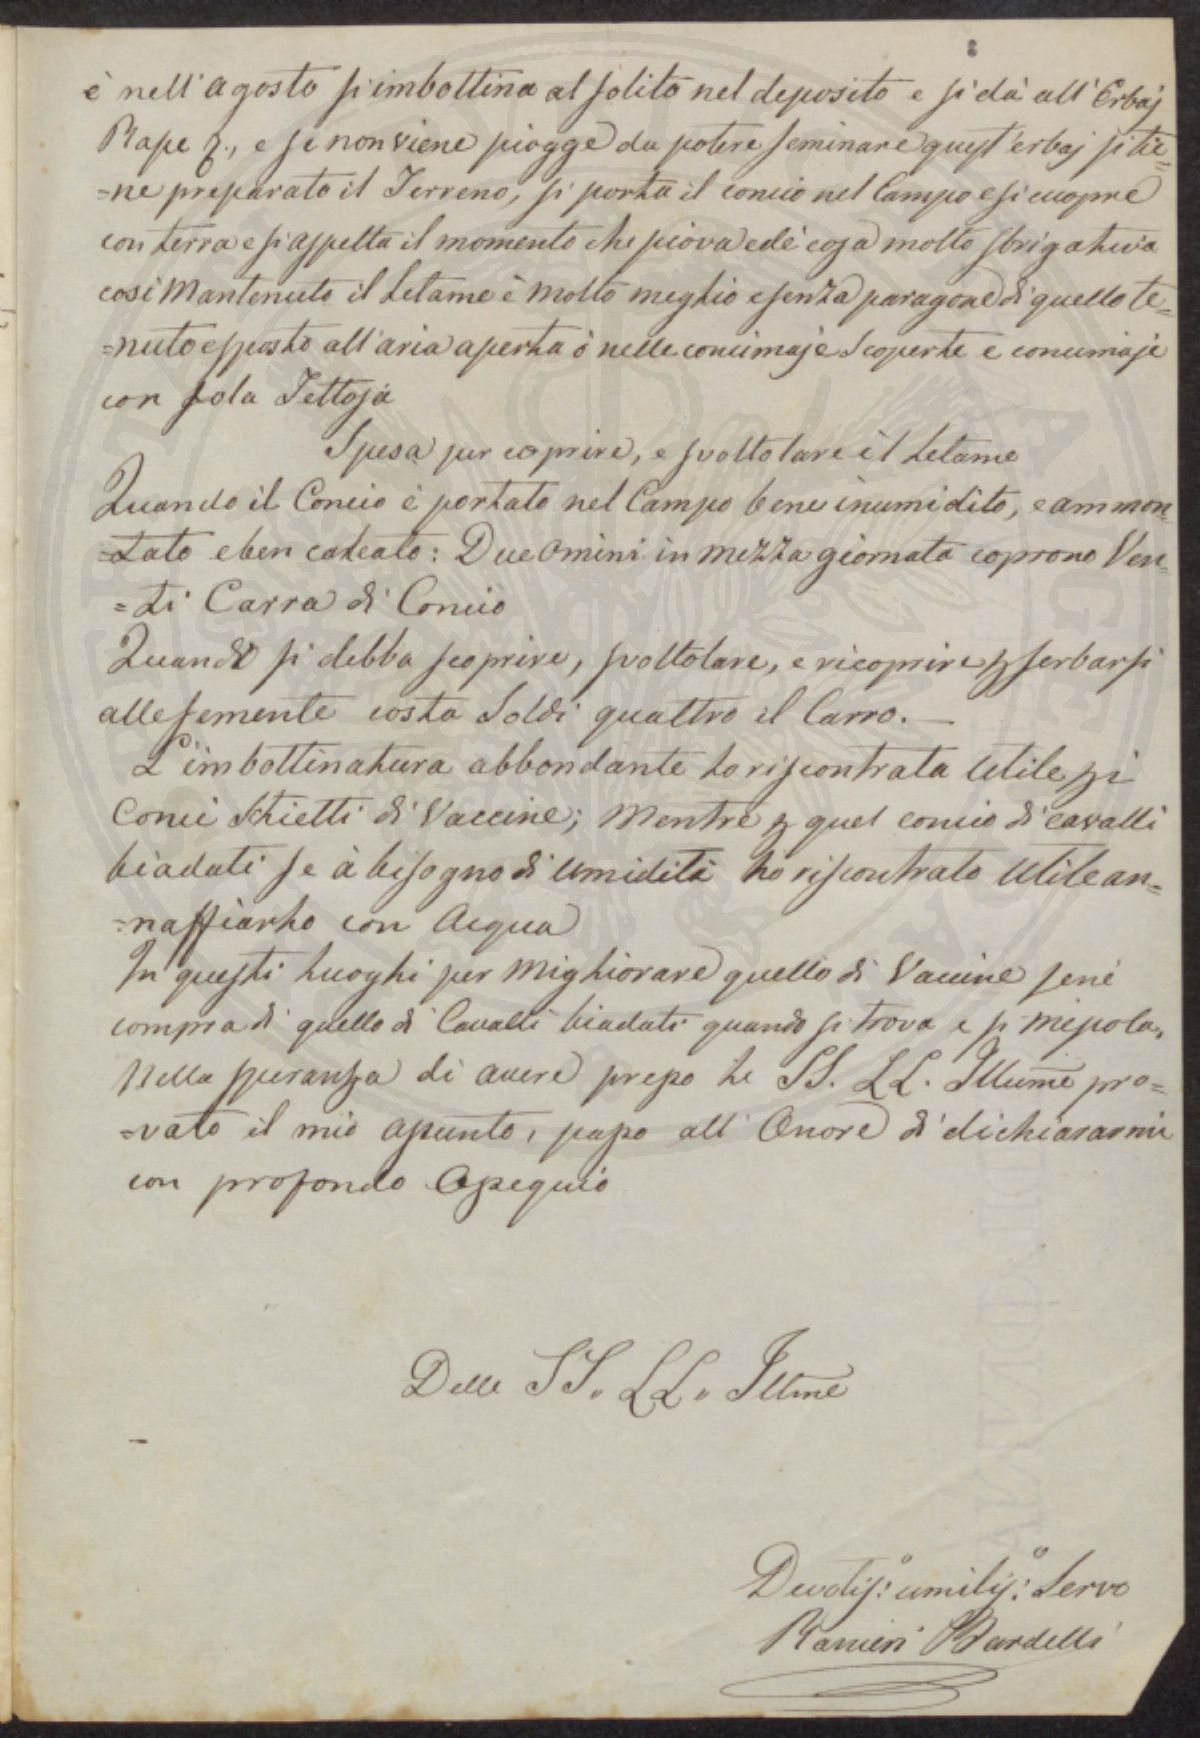 è nell'agosto si imbottina al solito nel deposito e si dà all'Erbaj
Rape &., e se non viene piogge da potere seminare quest'erbaj si tie=
=ne preparato il Terreno, si porta il concio nel Campo e si cuopre
con terra e si aspetta il momento che piova ed è cosa molto sbrigativa
così Mantenuto il letame è molto meglio e senza paragone di quello te=
=nuto esposto all'aria aperta ò nelle concimaje Scoperte e concimaje
con sola Tettoja
Spesa per coprire, e svoltolare il letame
Quando il Concio è portato nel Campo bene inumidito, e ammon=
=tato e ben calcato: Due Omini in mezza giornata coprono Ven=
=ti Carra di Concio
Quando si debba scoprire, svoltolare, e ricoprire p serbarsi
alle semente costa Soldi quattro il Carro.—
L'imbottinatura abbondante ho riscontrata Utile p i
Conci Schietti di Vaccine; Mentre p quel concio di cavalli
biadati se à bisogno di Umidità ho riscontrato Utile an=
=naffiarlo con Acqua
In questi luoghi per Migliorare quello di Vaccine sene
compra di quello di Cavalli biadati quando si trova e si mescola.
Nella speranza di avere presso le SS. LL. Illume pro=
=vato il mio assunto, passo all'Onore di dichiararmi
con profondo Ossequio
Delle SS. LL. Illme
Devotis:o umilis:o Servo
Ranieri Bardelli